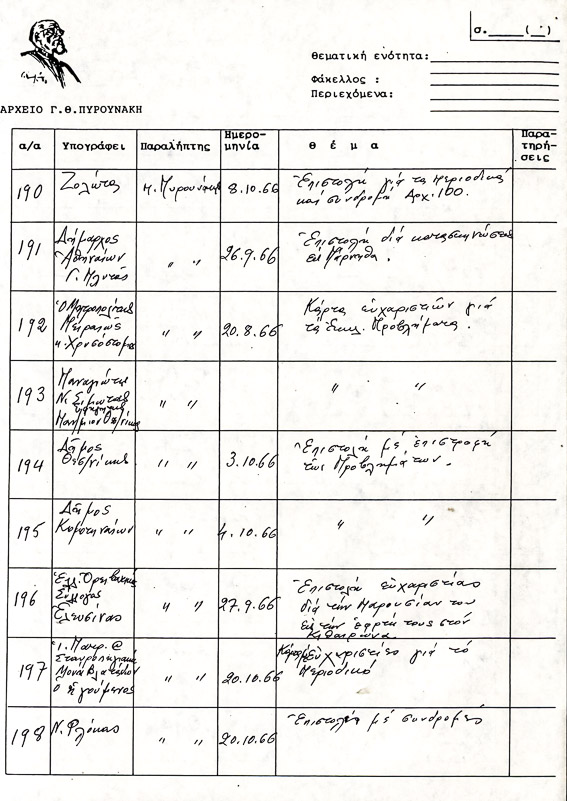 σ.____(__)
θεματική ενότητα:
Φάκελλος :
Περιεχόμενα:
ΑΡΧΕΙΟ Γ.Θ.ΠΥΡΟΥΝΑΚΗ
α/α Υπογράφει Παραλήπτης Ημερο-μηνία θ έ μ α Παρα-τηρή-σεις
190 Ζολώτας Γ. Πυρουνάκης 8.10.66 Ἐπιστολή γιά τά περιοδικά
καί συνδρομή Δρχ. 100.
191 Δήμαρχος
Ἀθηναίων
Γ. Πλυτάς
" " 26.9.66 Ἐπιστολή διά κατασκηνώσεις
εἰς Πάρνηθα.
192 Ὁ Μητροπολίτης
Πειραιῶς
κ. Χρυσόστομος
" " 20.8.66 Κάρτα εὐχαριστιῶν γιά
τά Ἐκκλ. Προβλήματα.
193 Παναγιώτης
Ν. Σιμωτας
" " " "
194 Δῆμος
Θεσ/νίκης
" " 3.10.66 Ἐπιστολή μέ ἐπιστροφή
τῶν Προβλημάτων.
195 Δῆμος
Κομοτηναίων
" " 4.10.66 " "
196 Ἑλλ. Ὀρειβατικός
Σύλλογος
Ἐλευσίνας
" " 27.9.66 Ἐπιστολή εὐχαριστίας
διά τήν παρουσίαν του
εἰς τήν ἑορτή τους στόν
Κιθαιρώνα.
197 Ἱ. Πατρ. @
Σταυροπηγιακή
Μονή Βλατάδων
Ὁ ἡγούμενος
" " 20.10.66 Κάρτα εὐχαριστίες γιά τό
περιοδικό
198 Ν. Φλόκας " " 20.10.66 Ἐπιστολή μέ συνδρομές